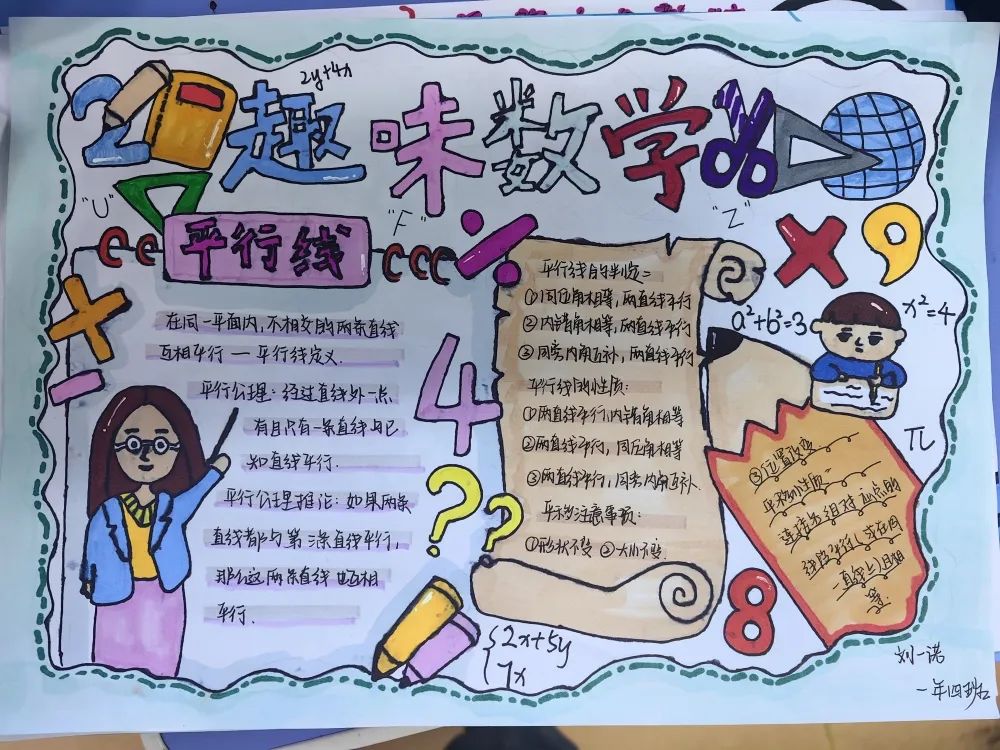 2y+4x
趣味数学
"U"
"F"
"Z"
平行线
在同一平面内,不相交的两条直线
互相平行 — 平行线定义.
平行公理:经过直线外一点,
有且只有一条直线与已
知直线平行.
平行公理推论:如果两条
直线都与第三条直线平行,
那么这两条直线也互相
平行.
4
平行线的判定:
①同位角相等,两直线平行
②内错角相等,两直线平行
③同旁内角互补,两直线平行
平行线的性质:
①两直线平行,内错角相等
②两直线平行,同位角相等
③两直线平行,同旁内角互补.
平移注意事项:
①形状不变 ②大小不变.
9
a²+b²=3
x²=4
π
③位置改变
平移的性质
连接各组对应点的
线段平行(或在同
一直线上)且相
等.
8
2x+5y
7x
刘一诺
一年四班